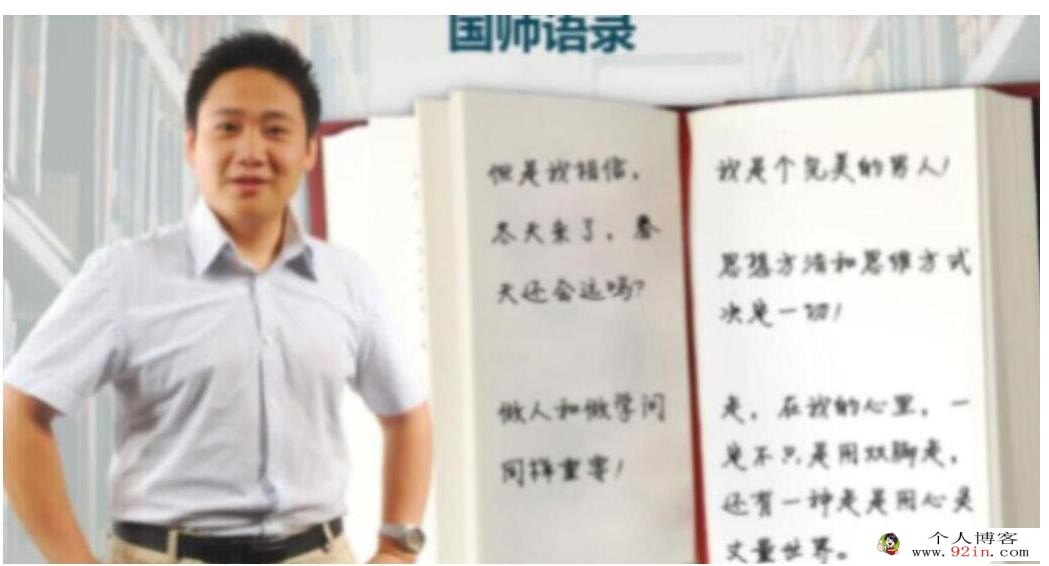 国师语录
但是我相信，
冬天来了，春
天还会远吗？
做人和做学问
同样重要！
我是个完美的男人！
思想方法和思维方式
决定一切！
走，在我的心里，一
定不只是用双脚走，
还有一种走是用心灵
丈量世界。
个人博客
www.92in.com